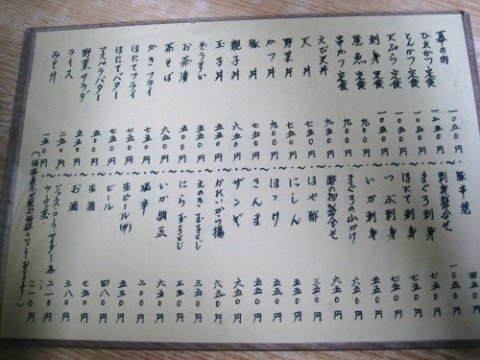 幕の内 一〇五〇円
ひれかつ定食 一二五〇円
とんかつ定食 一〇五〇円
天ぷら定食 一〇五〇円
刺身定食 一〇五〇円
焼魚定食
串かつ定食 九〇〇円
えび天丼 九〇〇円
天丼
野菜丼 七五〇円
かつ丼
豚丼 七五〇円
親子丼
玉子丼
ぞうすい 五五〇円
お茶漬 五五〇円
茶そば
かきフライ
ほたてフライ 七五〇円
ほたてバター 七五〇円
アスパラバター 五〇〇円
野菜サラダ 五五〇円
ライス 二五〇円
みそ汁 一五〇円
豚串焼 四五〇円
刺身盛合せ 一〇五〇円
まぐろ刺身 七五〇円
ほたて刺身 七五〇円
つぶ刺身 七五〇円
いか刺身 六五〇円
まぐろの山かけ 六五〇円
酢の物盛合せ
はや酢 三五〇円
にしん 五五〇円
ほっけ 五五〇円
さんま 五五〇円
ザンギ 六五〇円
かれいから揚 六五〇円
えのき玉子とじ 五五〇円
にら玉子とじ 五五〇円
いか納豆 六五〇円
塩辛 二〇〇円
生ビール(中) 五三〇円
ビール 四八〇円
生酒 七五〇円
お酒 三八〇円
ジュース・コーラ・サイダー各
ウーロン茶 二一〇円